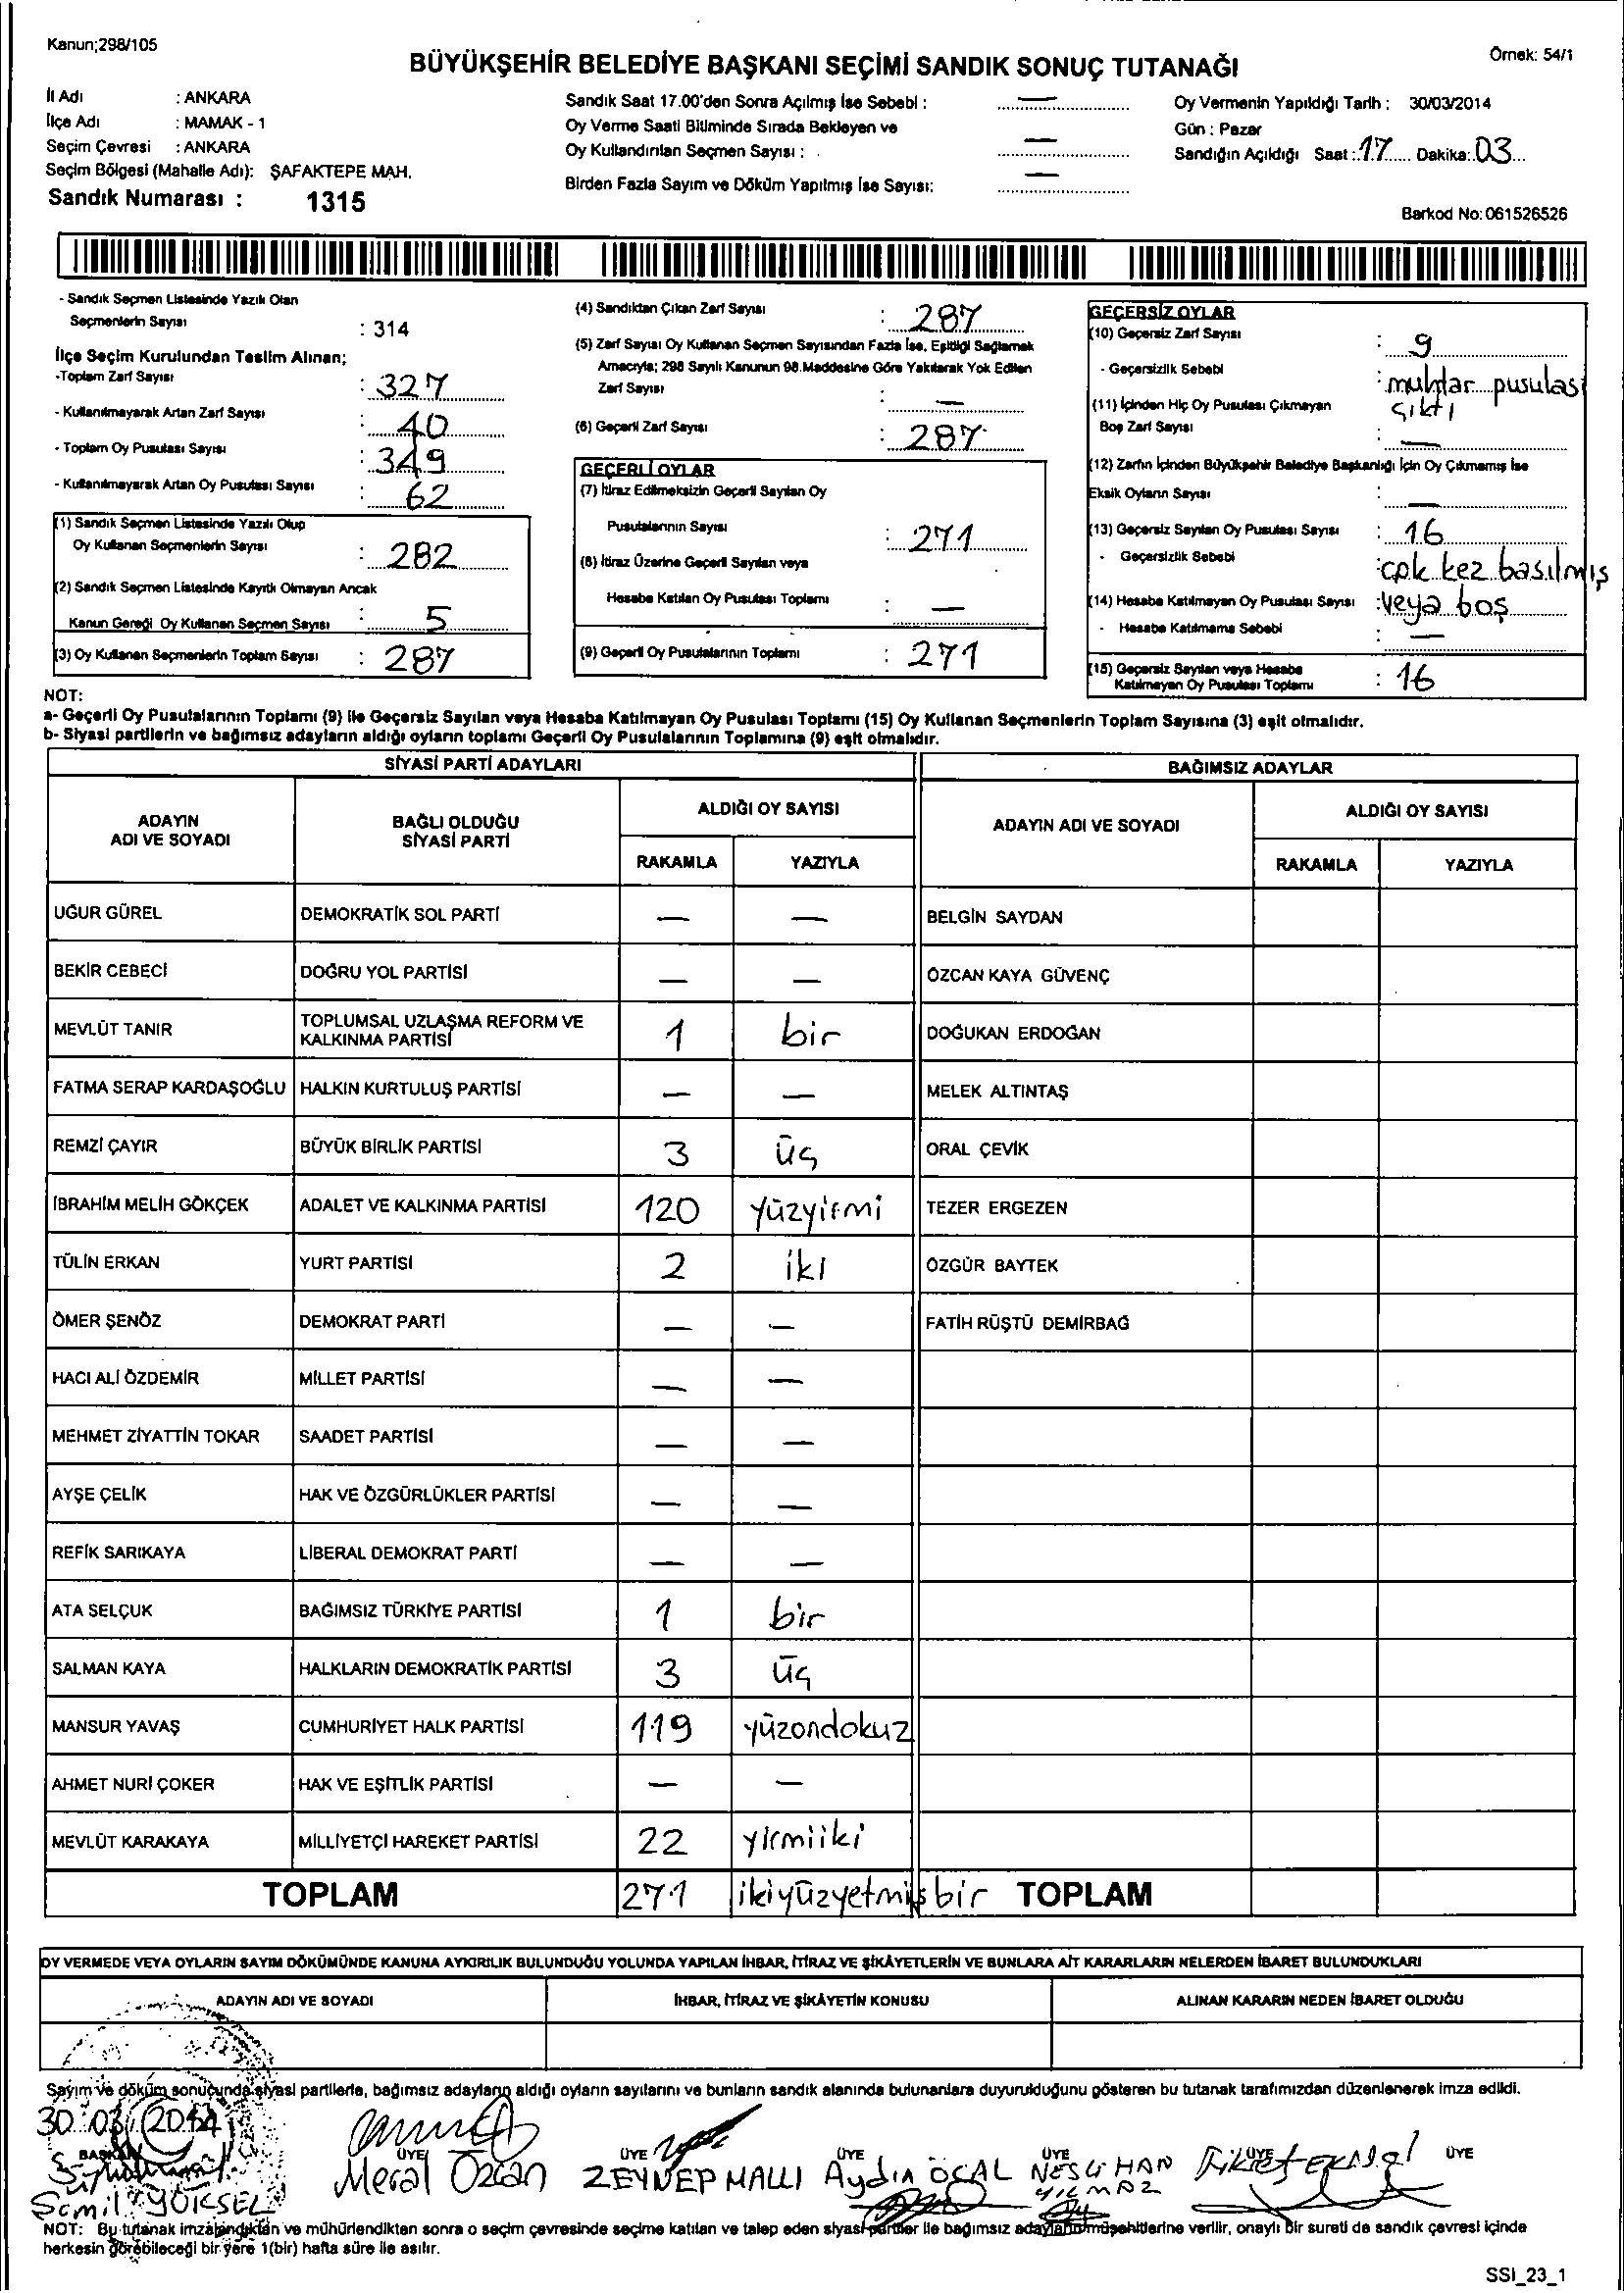 Kanun;298/105
Örnek: 54/1
BÜYÜKŞEHİR BELEDİYE BAŞKANI SEÇİMİ SANDIK SONUÇ TUTANAĞI
İl Adı : ANKARA
İlçe Adı : MAMAK - 1
Seçim Çevresi : ANKARA
Seçim Bölgesi (Mahalle Adı): ŞAFAKTEPE MAH.
Sandık Numarası : 1315
Sandık Saat 17.00'den Sonra Açılmış İse Sebebi : —
Oy Verme Saati Bitiminde Sırada Bekleyen ve
Oy Kullandırılan Seçmen Sayısı : —
Birden Fazla Sayım ve Döküm Yapılmış İse Sayısı: —
Oy Vermenin Yapıldığı Tarih : 30/03/2014
Gün : Pazar
Sandığın Açıldığı Saat : 17 Dakika: 03
Barkod No: 061526526
- Sandık Seçmen Listesinde Yazılı Olan
Seçmenlerin Sayısı : 314
İlçe Seçim Kurulundan Teslim Alınan;
-Toplam Zarf Sayısı : 327
- Kullanılmayarak Artan Zarf Sayısı : 40
- Toplam Oy Pusulası Sayısı : 349
- Kullanılmayarak Artan Oy Pusulası Sayısı : 62
(1) Sandık Seçmen Listesinde Yazılı Olup
Oy Kullanan Seçmenlerin Sayısı : 282
(2) Sandık Seçmen Listesinde Kayıtlı Olmayan Ancak
Kanun Gereği Oy Kullanan Seçmen Sayısı : 5
(3) Oy Kullanan Seçmenlerin Toplam Sayısı : 287
(4) Sandıktan Çıkan Zarf Sayısı : 287
(5) Zarf Sayısı Oy Kullanan Seçmen Sayısından Fazla İse, Eşitliği Sağlamak
Amacıyla; 298 Sayılı Kanunun 98.Maddesine Göre Yakılarak Yok Edilen
Zarf Sayısı : —
(6) Geçerli Zarf Sayısı : 287
GEÇERLİ OYLAR
(7) İtiraz Edilmeksizin Geçerli Sayılan Oy
Pusulalarının Sayısı : 271
(8) İtiraz Üzerine Geçerli Sayılan veya
Hesaba Katılan Oy Pusulası Toplamı : —
(9) Geçerli Oy Pusulalarının Toplamı : 271
GEÇERSİZ OYLAR
(10) Geçersiz Zarf Sayısı : 9
- Geçersizlik Sebebi : muhtar pusulası
çıktı
(11) İçinden Hiç Oy Pusulası Çıkmayan
Boş Zarf Sayısı : —
(12) Zarfın İçinden Büyükşehir Belediye Başkanlığı İçin Oy Çıkmamış İse
Eksik Oyların Sayısı : —
(13) Geçersiz Sayılan Oy Pusulası Sayısı : 16
- Geçersizlik Sebebi : çok kez basılmış
(14) Hesaba Katılmayan Oy Pusulası Sayısı : veya boş
- Hesaba Katılmama Sebebi : —
(15) Geçersiz Sayılan veya Hesaba
Katılmayan Oy Pusulası Toplamı : 16
NOT:
a- Geçerli Oy Pusulalarının Toplamı (9) ile Geçersiz Sayılan veya Hesaba Katılmayan Oy Pusulası Toplamı (15) Oy Kullanan Seçmenlerin Toplam Sayısına (3) eşit olmalıdır.
b- Siyasi partilerin ve bağımsız adayların aldığı oyların toplamı Geçerli Oy Pusulalarının Toplamına (9) eşit olmalıdır.
SİYASİ PARTİ ADAYLARI BAĞIMSIZ ADAYLAR
ADAYIN ADI VE SOYADI BAĞLI OLDUĞU SİYASİ PARTİ ALDIĞI OY SAYISI ADAYIN ADI VE SOYADI ALDIĞI OY SAYISI
RAKAMLA YAZIYLA RAKAMLA YAZIYLA
UĞUR GÜREL DEMOKRATİK SOL PARTİ — — BELGİN SAYDAN
BEKİR CEBECİ DOĞRU YOL PARTİSİ — — ÖZCAN KAYA GÜVENÇ
MEVLÜT TANIR TOPLUMSAL UZLAŞMA REFORM VE KALKINMA PARTİSİ 1 bir DOĞUKAN ERDOĞAN
FATMA SERAP KARDAŞOĞLU HALKIN KURTULUŞ PARTİSİ — — MELEK ALTINTAŞ
REMZİ ÇAYIR BÜYÜK BİRLİK PARTİSİ 3 üç ORAL ÇEVİK
İBRAHİM MELİH GÖKÇEK ADALET VE KALKINMA PARTİSİ 120 yüzyirmi TEZER ERGEZEN
TÜLİN ERKAN YURT PARTİSİ 2 iki ÖZGÜR BAYTEK
ÖMER ŞENÖZ DEMOKRAT PARTİ — — FATİH RÜŞTÜ DEMİRBAĞ
HACI ALİ ÖZDEMİR MİLLET PARTİSİ — —
MEHMET ZİYATTİN TOKAR SAADET PARTİSİ — —
AYŞE ÇELİK HAK VE ÖZGÜRLÜKLER PARTİSİ — —
REFİK SARIKAYA LİBERAL DEMOKRAT PARTİ — —
ATA SELÇUK BAĞIMSIZ TÜRKİYE PARTİSİ 1 bir
SALMAN KAYA HALKLARIN DEMOKRATİK PARTİSİ 3 üç
MANSUR YAVAŞ CUMHURİYET HALK PARTİSİ 119 yüzondokuz
AHMET NURİ ÇOKER HAK VE EŞİTLİK PARTİSİ — —
MEVLÜT KARAKAYA MİLLİYETÇİ HAREKET PARTİSİ 22 yirmiiki
TOPLAM 271 ikiyüzyetmişbir TOPLAM
OY VERMEDE VEYA OYLARIN SAYIM DÖKÜMÜNDE KANUNA AYKIRILIK BULUNDUĞU YOLUNDA YAPILAN İHBAR, İTİRAZ VE ŞİKÂYETLERİN VE BUNLARA AİT KARARLARIN NELERDEN İBARET BULUNDUKLARI
ADAYIN ADI VE SOYADI İHBAR, İTİRAZ VE ŞİKÂYETİN KONUSU ALINAN KARARIN NEDEN İBARET OLDUĞU
Sayım ve döküm sonucunda siyasi partilerle, bağımsız adayların aldığı oyların sayılarını ve bunların sandık alanında bulunanlara duyurulduğunu gösteren bu tutanak tarafımızdan düzenlenerek imza edildi.
30.03.2014
BAŞKAN ÜYE ÜYE ÜYE ÜYE ÜYE ÜYE
Meral Özcan ZEYNEP MALLI Aydın ÖCAL NESLİHAN YILMAZ
YÜKSEL
NOT: Bu tutanak imzalandıktan ve mühürlendikten sonra o seçim çevresinde seçime katılan ve talep eden siyasi partiler ile bağımsız adayların müşahitlerine verilir, onaylı bir sureti de sandık çevresi içinde
herkesin görebileceği bir yere 1(bir) hafta süre ile asılır.
SSI_23_1